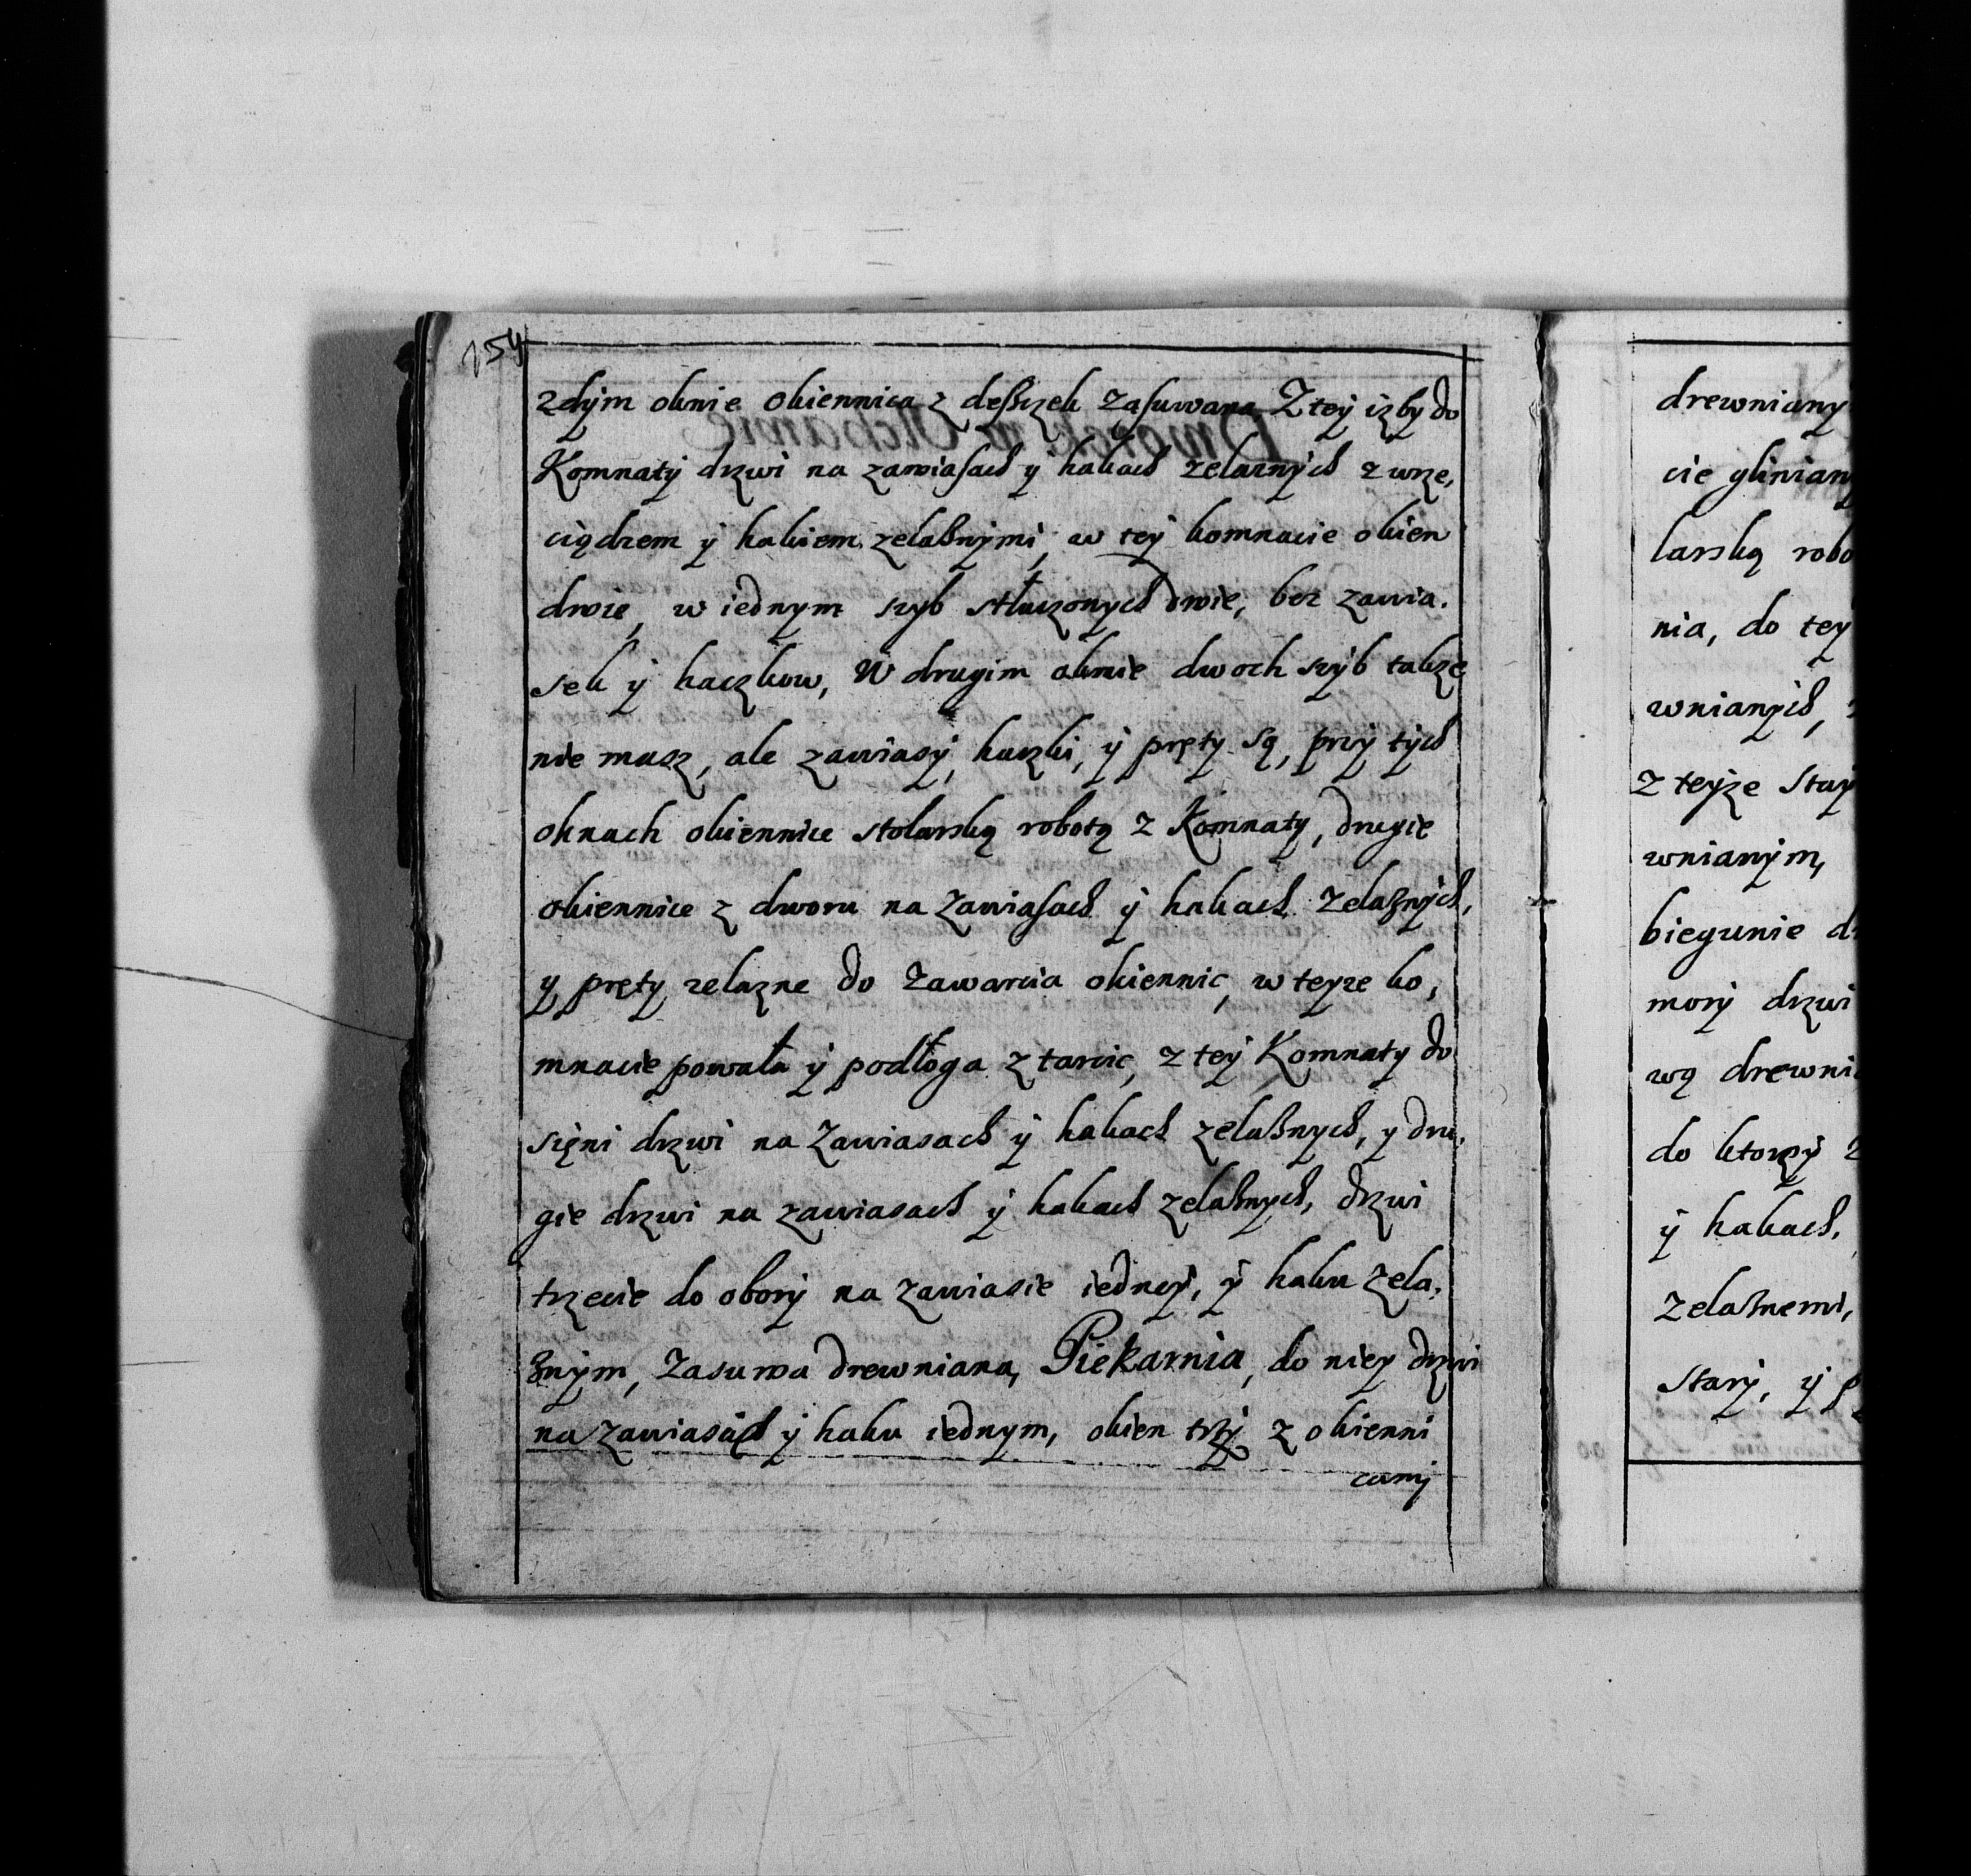 154
zdym oknie okiennica z desczek zasuwana Z tey izby do
Komnaty drzwi na zawiasach y hakach zelaznych z wrze,
ciądzem y hakiem zelaznymi, w tey komnacie okien
dwie, w iednym szyb stłuczonych dwie, bez zawia.
sek y haczkow, W drugim oknie dwoch szyb takze
nie masz, ale zawiasy, haczki, y pręty są, przy tych
oknach okiennice stolarską robotą z Komnaty, drugie
okiennice z dworu na zawiasach y hakach zelaznych,
y pręty zelazne do zawarcia okiennic, w teyze ko,
mnacie powała y podłoga z tarcic, z tey Komnaty do
sięni drzwi na zawiasach y hakach zelaznych, y dru,
gie drzwi na zawiasach y hakach zelaznych, drzwi
trzecie do obory na zawiasie iedney, y haku zela,
znym, zasuwa drewniana, Piekarnia, do niey drzwi
na zawiasach y haku iednym, okien trzy z okienni
camj
drewniany
cie glinian
larską robo
nia, do tey
wnianych,
z teyze Stay
wnianym,
biegunie d
mory drzwi
wą drewni
do ktorzy z
y hakach,
zelaznemi,
Stary, y p